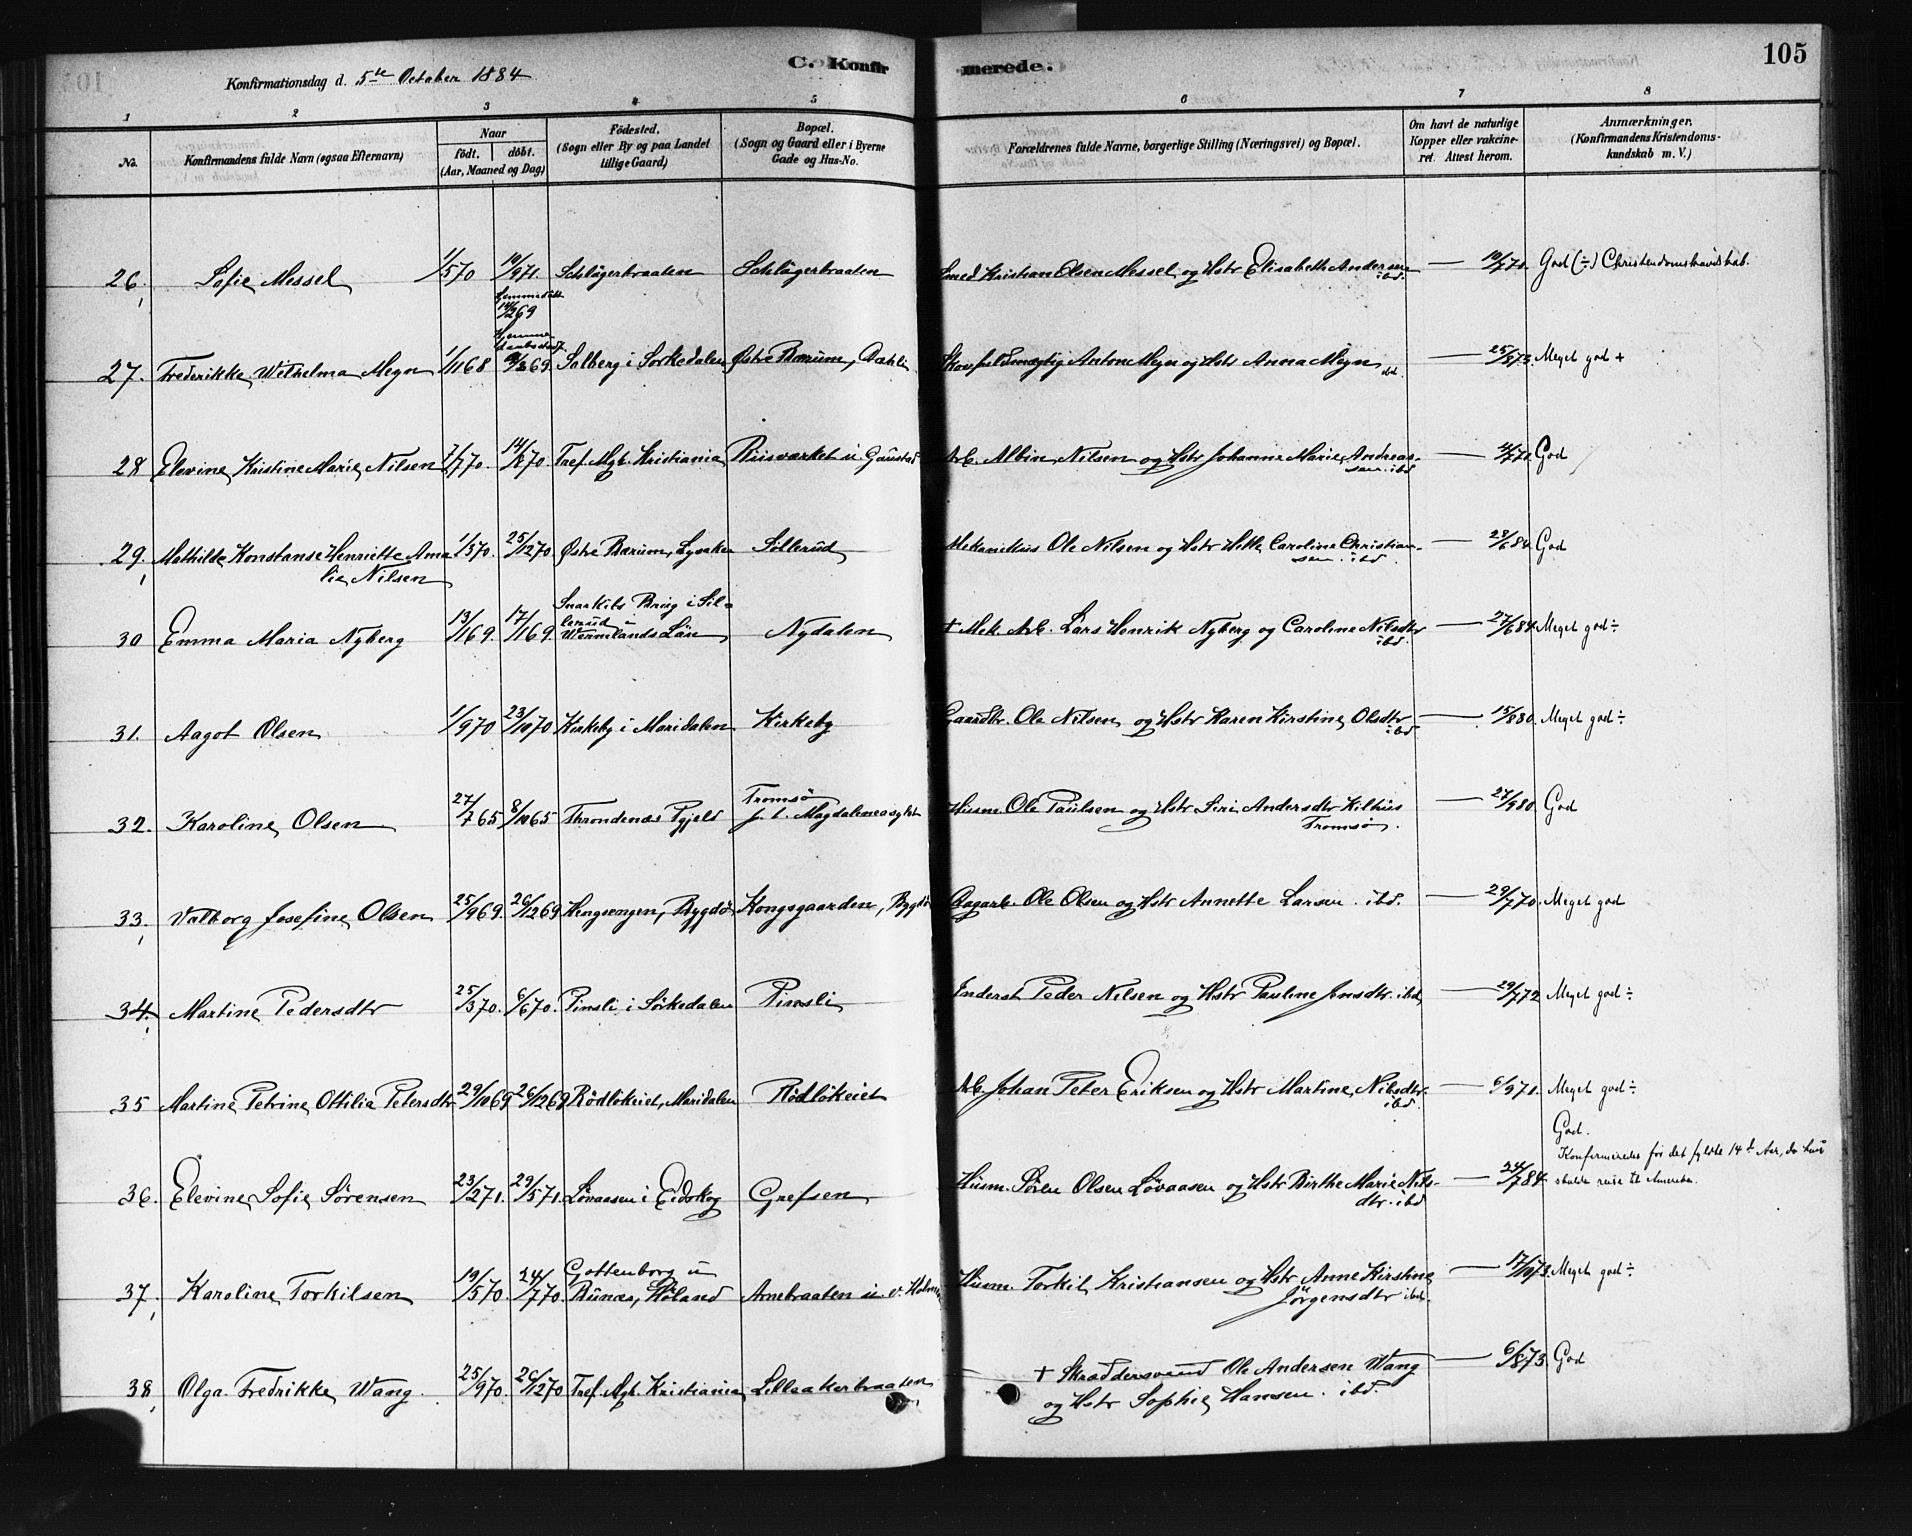 105
Konfirmationsdag d. 5te October 1884
C. Konfirmerede.
1 2 3 4 5 6 7 8
No. Konfirmandens fulde Navn (øgsaa Efternavn) Naar födt. döbt. (Aar, Maaned og Dag) Födested. (Sogn eller By og paa Landet tillige Gaard) Bopæl. (Sogn og Gaard eller i Byerne Gade og Hus-No. Forældrenes fulde Navne, borgerlige Stilling (Næringsvei) og Bopæl. Om havt de naturlige Kopper eller vakcineret. Attest herom. Anmærkninger. (Konfirmandens Kristendomskundskab m. V.)
26. Sofie Messel 1/5 70 10/9 71. Schlägerbraaten Schlägerbraaten Smed Kristian Olsen Messel og Hstr Elisabeth Andersen ibd. God (÷) Christendomskundskab.
27. Frederikke Wilhelma Megn 1/11 68 Solberg i Sørkedalen Østre Bærum, Dæhli Skovfuldmægtig Anton Megn og Hstr Anna Megn ibd. Meget god +
28 Elevine Kristine Marie Nilsen 7/7 70. 14/8 70. Tref. Mgh. Kristiania Riisværket u Gaustad Arb. Albin Nilsen og Hstr Johanne Marie Andreassen ibd God
29, Mathilde Konstanse Henriette Amalie Nilsen 1/3 70. 25/12 70 Østre Bærum, Lysaker Sollerud Mekanikus Ole Nilsen og Hstr Caroline Christiansen ibd. 28/6 84. God
30 Emma Maria Nyberg 13/11 69. 17/11 69. Wermlands Län Nydalen + Mek. Arb. Lars Henrik Nyberg og Caroline Nilsdtr ibd. 27/6 84. Meget god ÷
31. Aagot Olsen 1/9 70 23/10 70 Kirkeby i Maridalen Kirkeby Gaardbr. Ole Nilsen og Hstr Karen Kirstine Olsdtr ibd. 15/8 80. Meget god ÷
32. Karoline Olsen 27/7 65 8/10 65 Throndenæs Pgjeld Tromsø Husm. Ole Paulsen og Hstr Siri Andersdtr Kilhus Tromsø. 27/9 80. God
33. Valborg Josefine Olsen 25/9 69. 26/12 69 Hengsengen, Bygdø Kongsgaarden, Bygdø Dagarb. Ole Olsen og Hstr Annette Larsen ibd. 29/7 70. Meget god
34. Martine Pedersdtr 25/3 70. 6/6 70. Pinsli i Sørkedalen Pinsli Inderst Peder Nilsen og Hstr Pauline Jonsdtr. ibd. 29/7 72 Meget god ÷
35 Martine Petrine Ottilia Petersdtr 29/10 69 26/12 69 Rödlökeiet, Maridalen Rödlökeiet Arb. Johan Peter Eriksen og Hstr Martine Nilsdtr. ibd. 6/9 71. Meget god ÷
36. Elevine Sofie Sørensen 23/2 71. 29/5 71. Løvaasen i Eidskog Grefsen Husm. Søren Olsen Løvaasen og Hstr Birthe Marie Nilsdtr. ibd 24/7 84. God. Konfirmeredes før det fyldte 14de Aar, da hun skulde reise til Amerika.
37. Karoline Torkilsen 19/5 70. 24/7 70. Gottenborg u Bunæs, Høland Arnebraaten u. v. Holmen Husm. Torkil Kristiansen og Hstr Anne Kirstine Jörgensdtr ibd. 17/10 73. Meget god ÷
38, Olga Fredrikke Wang. 25/9 70. 26/12 70. Tref. Mgh. Kristiania Lilleakerbraaten + Skræddersvend Ole Andersen Wang og Hstr Sophie Hansen. ibd. 6/8 73. God